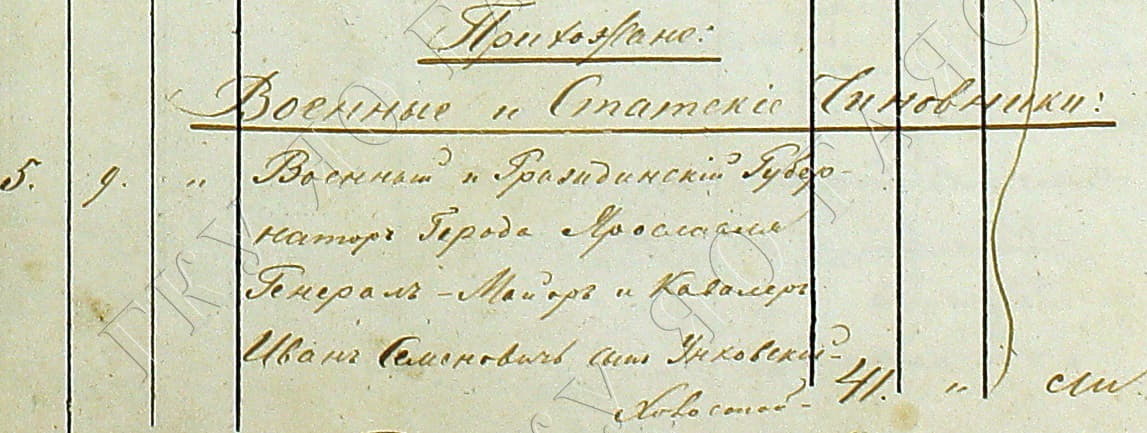 Прихожане:
Военные и Статскіе Чиновники:
5. 9. „ Военный и Гражданскій Губер-
наторъ Города Ярославля
Генералъ-Маіоръ и Кавалеръ
Иванъ Семеновичъ сын Унковскій-
Холостой- 41. „